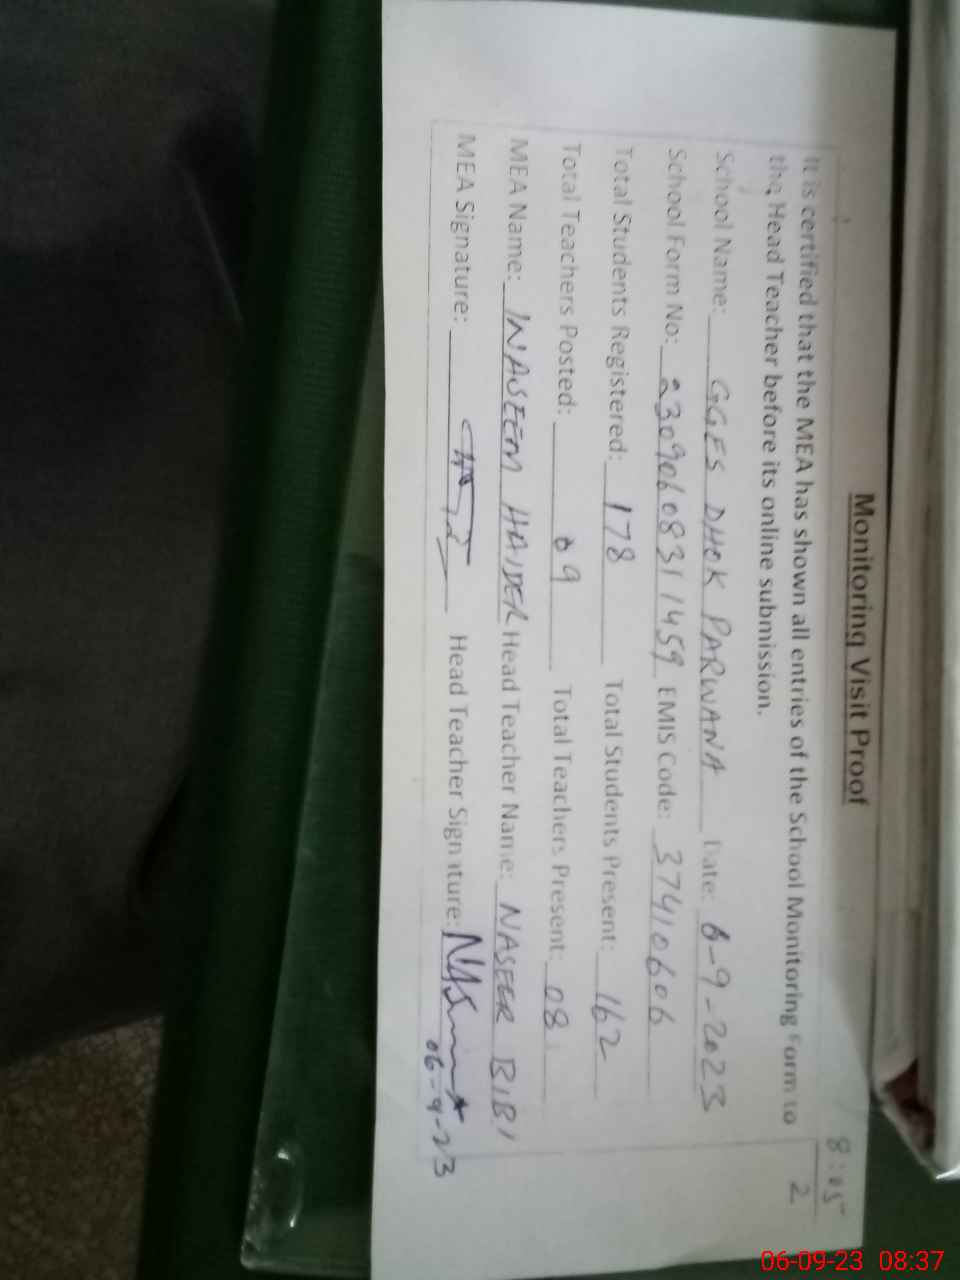 8:05
2
Monitoring Visit Proof
It is certified that the MEA has shown all entries of the School Monitoring Form to
the Head Teacher before its online submission.
School Name: GGES DHOK PARWANA Date: 6-9-2023
School Form No: 23090608311459 EMIS Code: 37410606
Total Students Registered: 178 Total Students Present: 162
Total Teachers Posted: 09 Total Teachers Present: 08
MEA Name: NASEEM HAIDER Head Teacher Name: NASEER BIBI
MEA Signature: Head Teacher Signature:
06-9-23
06-09-23 08:37